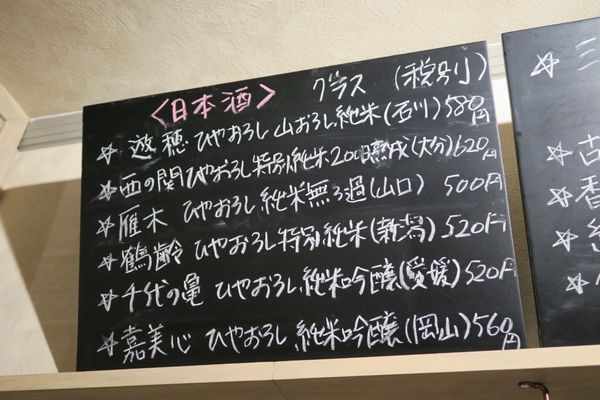 <日本酒> グラス (税別)
☆ 遊穂 ひやおろし 山おろし純米(石川) 580円
☆ 西の関ひやおろし特別純米 熟成(大分) 620円
☆ 雁木 ひやおろし 純米無ろ過(山口) 500円
☆ 鶴齢 ひやおろし特別純米(新潟) 520円
☆ 千代の亀 ひやおろし純米吟醸(愛媛) 520円
☆ 嘉美心 ひやおろし 純米吟醸(岡山) 560円
☆ 三
☆ 古
☆ 香
☆
☆